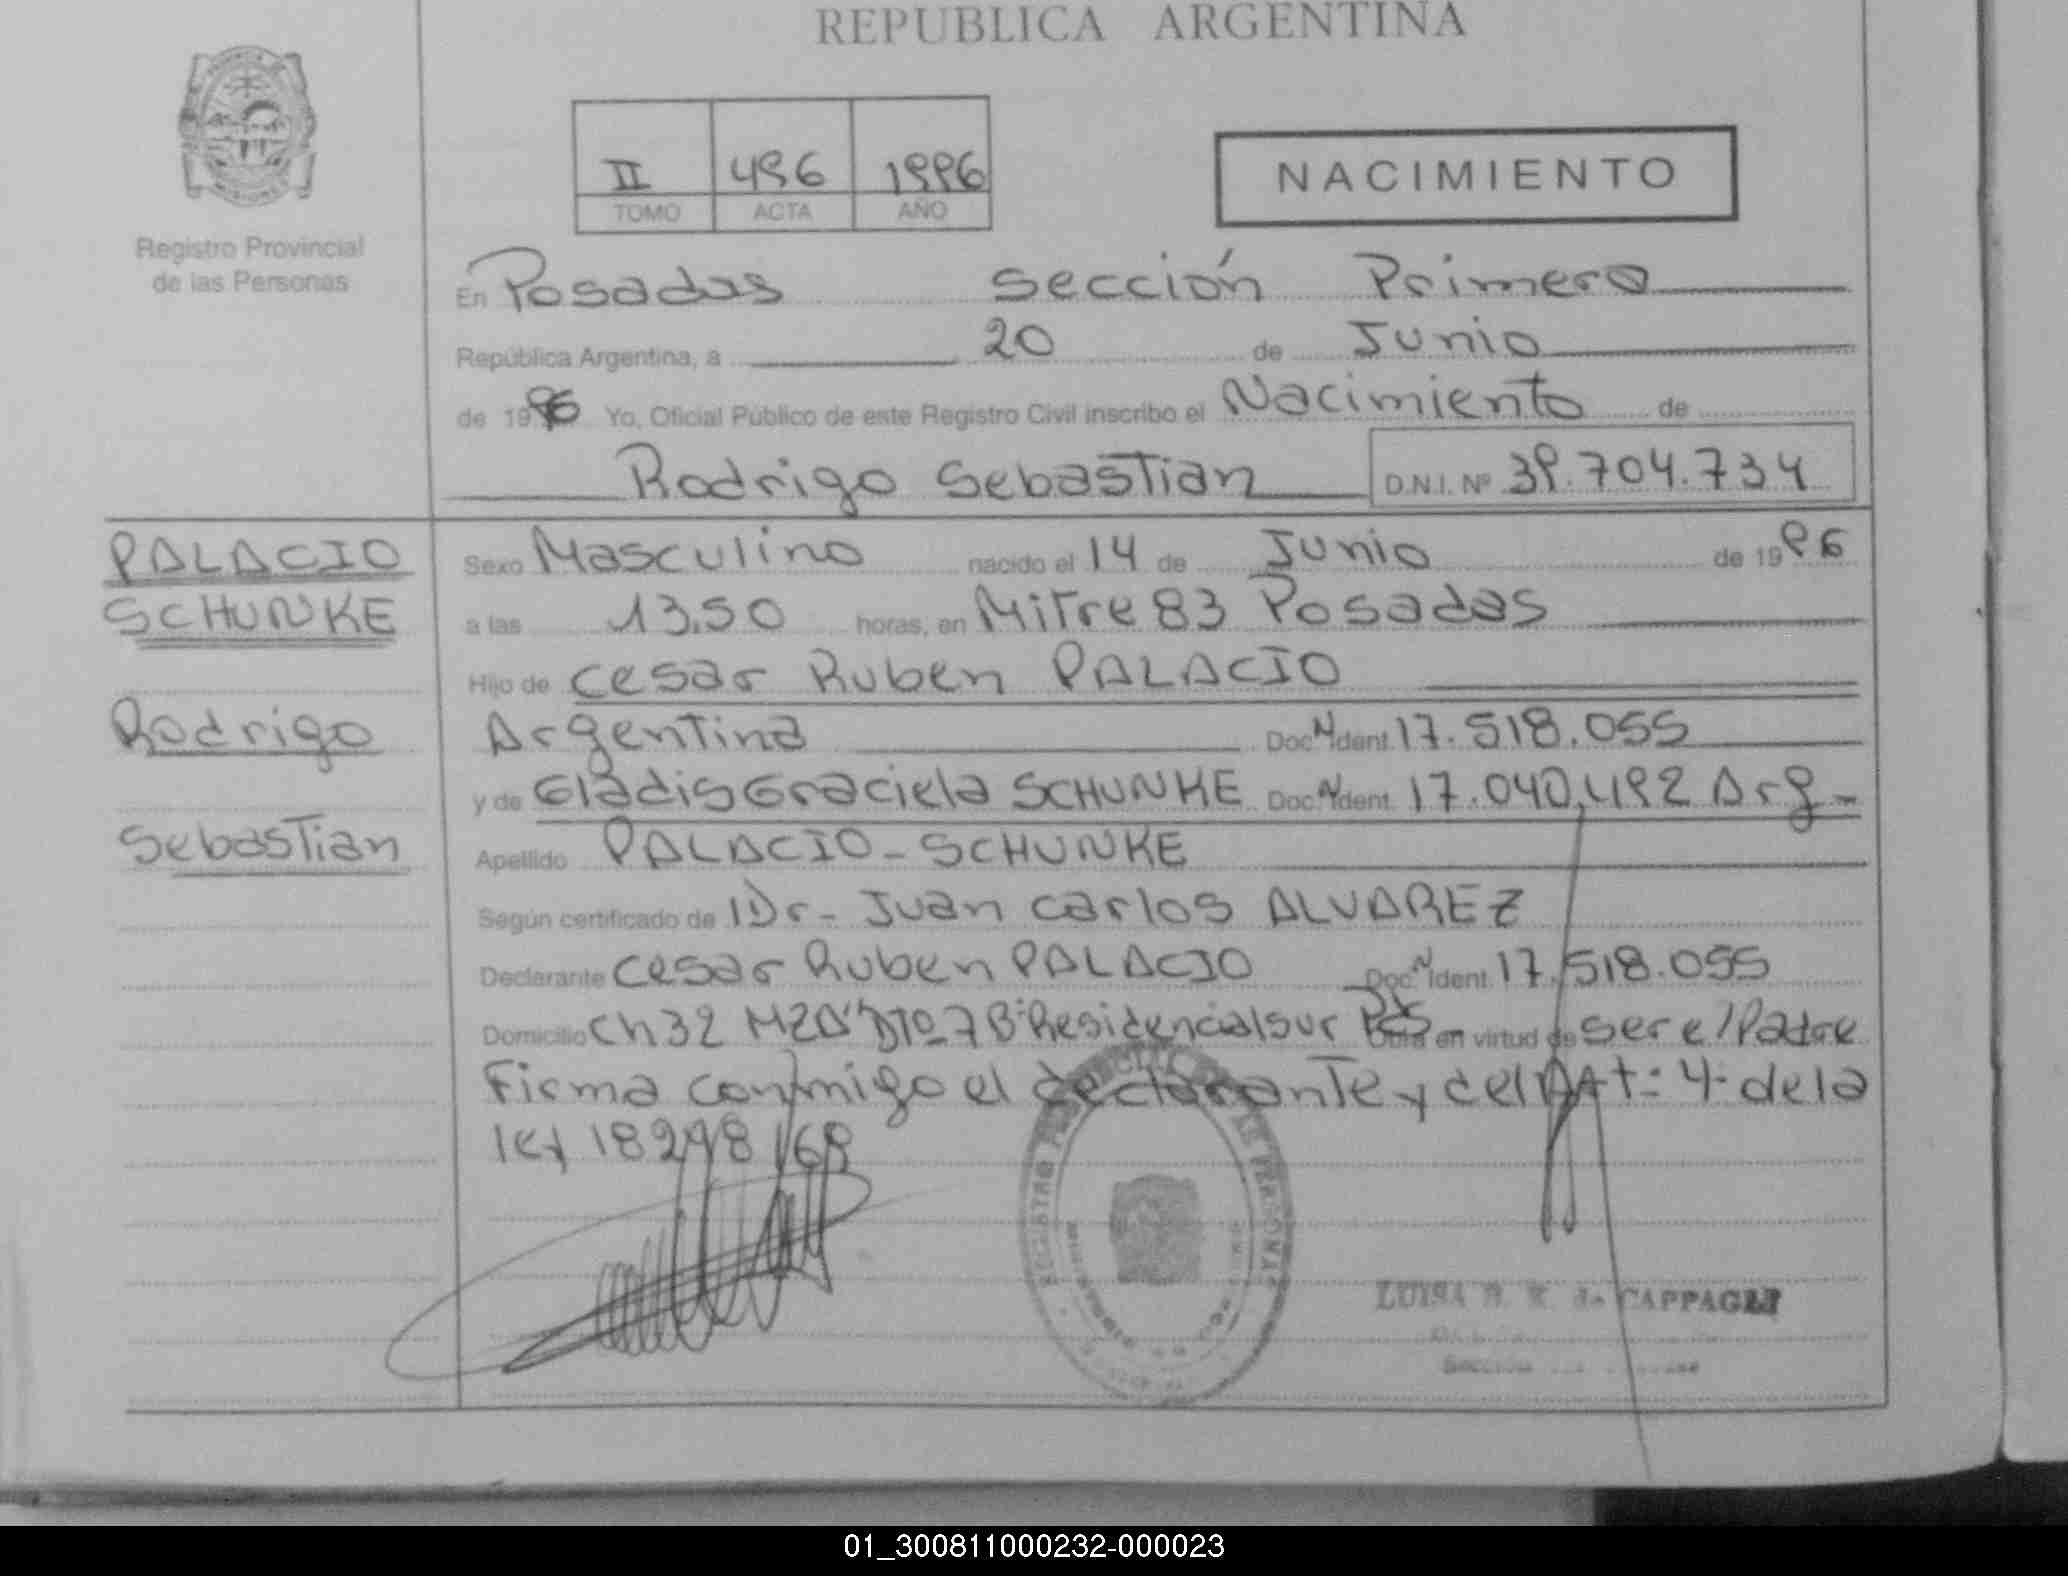 REPUBLICA ARGENTINA
II 496 1996
TOMO ACTA AÑO
NACIMIENTO
Registro Provincial
de las Personas
En Posadas sección Primera
República Argentina, a 20 de Junio
de 1996 Yo, Oficial Público de este Registro Civil inscribo el Nacimiento de
Rodrigo Sebastian D.N.I. Nº 39.704.734
PALACIO
SCHUNKE
Rodrigo
Sebastian
Sexo Masculino nacido el 14 de Junio de 1996
a las 13,50 horas, en Mitre 83 Posadas
Hijo de Cesar Ruben PALACIO
Argentina Doc. Ident. 17.518.055
y de Gladis Graciela SCHUNKE Doc. Ident. 17.040.492 Arg-
Apellido PALACIO - SCHUNKE
Según certificado de Dr- Juan Carlos ALVAREZ
Declarante Cesar Ruben PALACIO Doc. Ident. 17.518.055
Domicilio Ch 32 Dto 7 B: Residencial sur Obra en virtud de ser el Padre
Firma conmigo el declarante y del Art: 4- de la
ley 18248/69
REGISTRO DE LAS PERSONAS
LUISA de CAPPAGLI
Sección
01_300811000232-000023